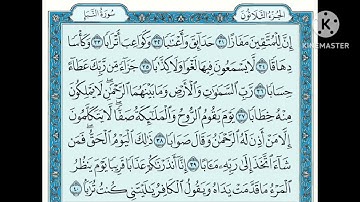 الجزء الثلاثون
سورة النبإ
إِنَّ لِلْمُتَّقِينَ مَفَازًا ٣١ حَدَائِقَ وَأَعْنَابًا ٣٢ وَكَوَاعِبَ أَتْرَابًا ٣٣ وَكَأْسًا
دِهَاقًا ٣٤ لَّا يَسْمَعُونَ فِيهَا لَغْوًا وَلَا كِذَّابًا ٣٥ جَزَاءً مِّن رَّبِّكَ عَطَاءً
حِسَابًا ٣٦ رَّبِّ السَّمَٰوَٰتِ وَالْأَرْضِ وَمَا بَيْنَهُمَا الرَّحْمَٰنِ لَا يَمْلِكُونَ
مِنْهُ خِطَابًا ٣٧ يَوْمَ يَقُومُ الرُّوحُ وَالْمَلَٰئِكَةُ صَفًّا لَّا يَتَكَلَّمُونَ
إِلَّا مَنْ أَذِنَ لَهُ الرَّحْمَٰنُ وَقَالَ صَوَابًا ٣٨ ذَٰلِكَ الْيَوْمُ الْحَقُّ فَمَن
شَاءَ اتَّخَذَ إِلَىٰ رَبِّهِ مَـَٔابًا ٣٩ إِنَّا أَنذَرْنَٰكُمْ عَذَابًا قَرِيبًا يَوْمَ يَنظُرُ
الْمَرْءُ مَا قَدَّمَتْ يَدَاهُ وَيَقُولُ الْكَافِرُ يَٰلَيْتَنِي كُنتُ تُرَٰبًا ٤٠
Made with
KINEMASTER